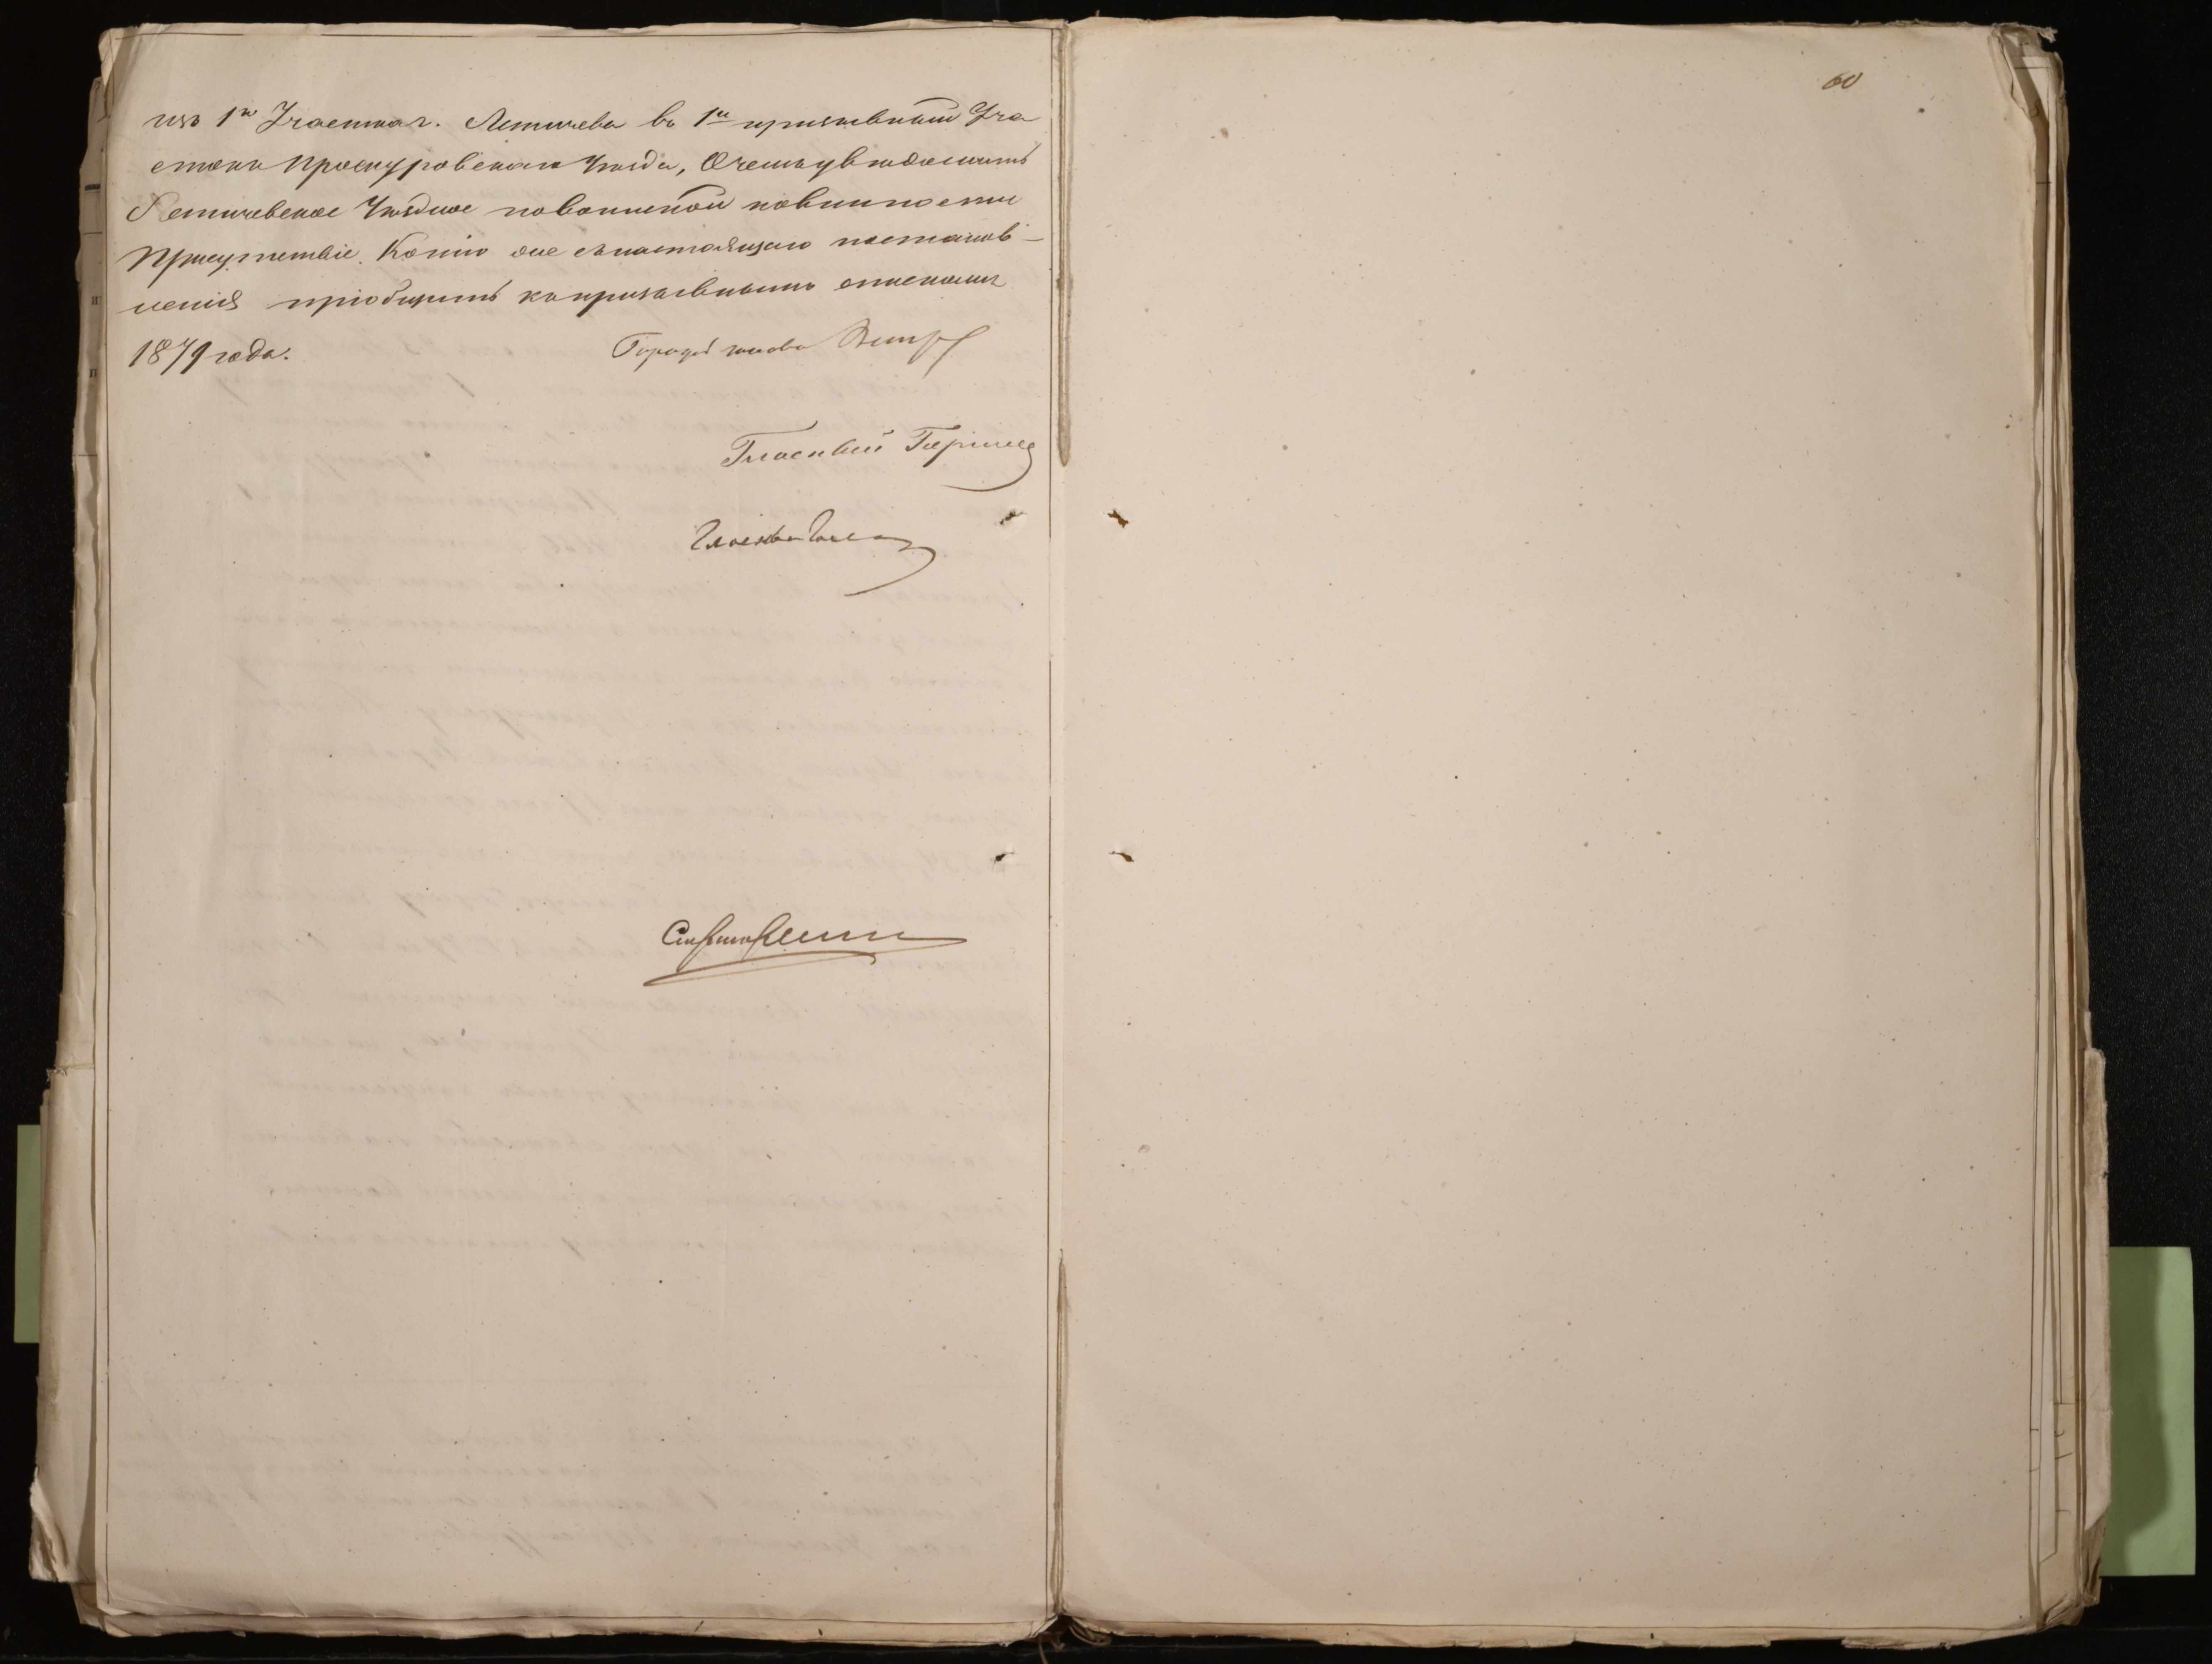 60
изъ 1го Участка г. Летичева въ 1й призывный Уча
стокъ Проскуровскаго Уѣзда, О чемъ увѣдомить
Летичевское Уѣздное по воинской повинности
Присутствіе. Копію же съ настоящаго постанов-
ленія пріобщить къ призывнымъ спискамъ
1879 года.
Городской голова
Гласный
Гласный